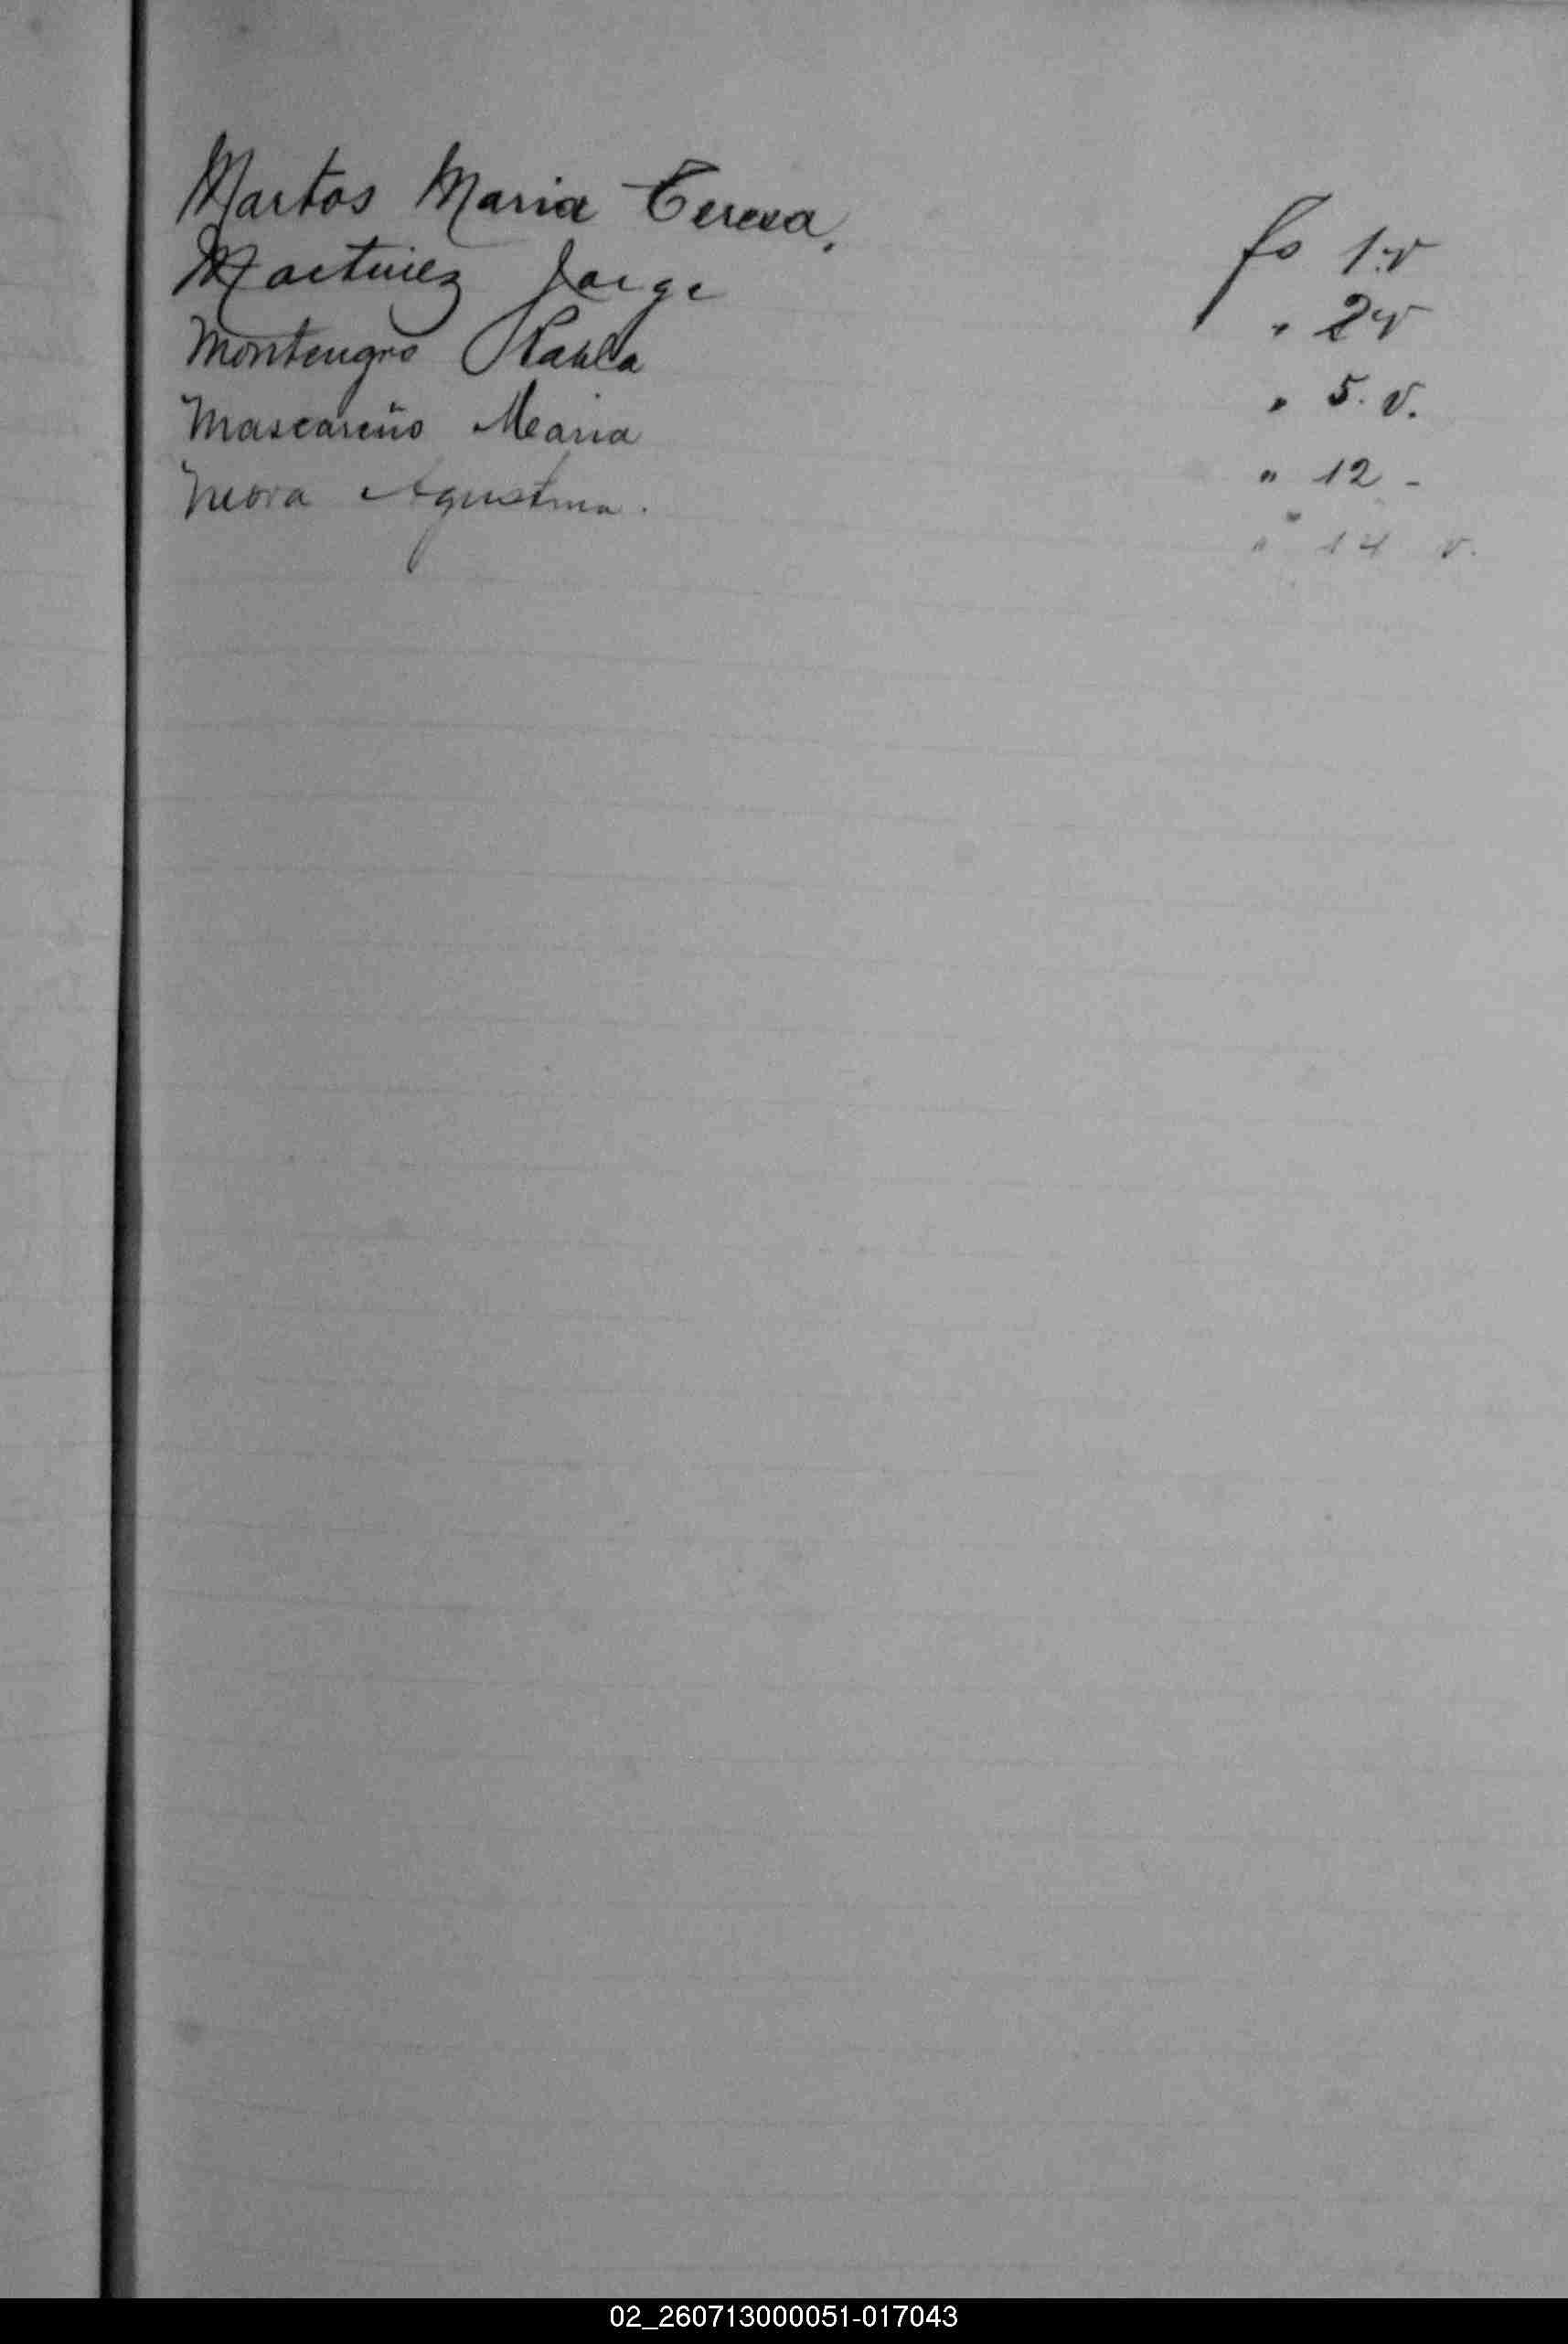 Martos Maria Teresa, fo 1.v
Martinez Jorge " 2v
Montenegro Pabla " 5. v.
Mascareño Maria " 12 -
Mora Agustina. " 14 v.
02_260713000051-017043